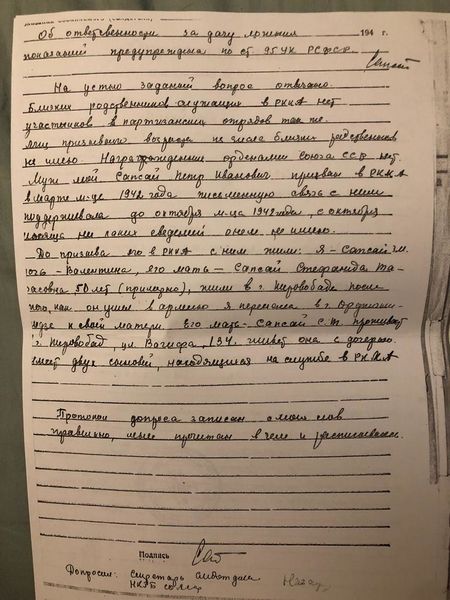 194 г.
Об ответственности за дачу ложных
показаний предупреждена по ст. 95 УК РСФСР.
Сапсай
На устно заданный вопрос отвечаю.
Близких родственников служащих в РККА нет
участников в партизанских отрядов так же.
лиц призывного возраста из числа близких родственников
не имею. Награжденных орденами Союза ССР нет.
Муж мой Сапсай Петр Иванович, призван в РККА
в марте м-ца 1942 года письменную связь с ним
поддерживала до октября м-ца 1942 года, с октября
месяца ни каких сведений о нем не имею.
До призыва его в РККА с ним жили: Я - Сапсай
дочь - Валентина, его мать - Сапсай Стефанида Та-
расовна 50 лет (примерно), жили в г. Кировобаде после
того, как он ушел в армию я переехала в г. Орджони-
кидзе к своей матери. Его мать - Сапсай С.Т. проживает
г. Кировобад, ул. Вагифа, 134. живет она с дочерью.
имеет двух сыновей, находящихся на службе в РККА
Протокол допроса записан с моих слов
правильно, мне прочитан в чем и расписываюсь.
Подпись
Допросил: Секретарь
НКГБ